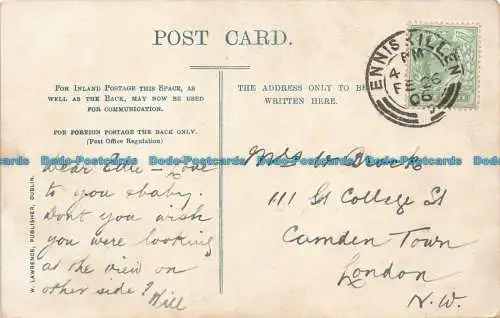 POST CARD.
FOR INLAND POSTAGE THIS SPACE, AS
WELL AS THE BACK, MAY NOW BE USED
FOR COMMUNICATION.
FOR FOREIGN POSTAGE THE BACK ONLY.
(Post Office Regulation)
THE ADDRESS ONLY TO BE
WRITTEN HERE.
ENNISKILLEN
4 PM
FE 26
06
W. LAWRENCE, PUBLISHER, DUBLIN.
Dear — love
to you & baby.
Dont you wish
you were looking
at the view on
other side? Will
Mrs W
111 Gt College St
Camden Town
London
N.W.
Postcards-DDD Postcards-DDD Postcards-DDD Postcards-DDD